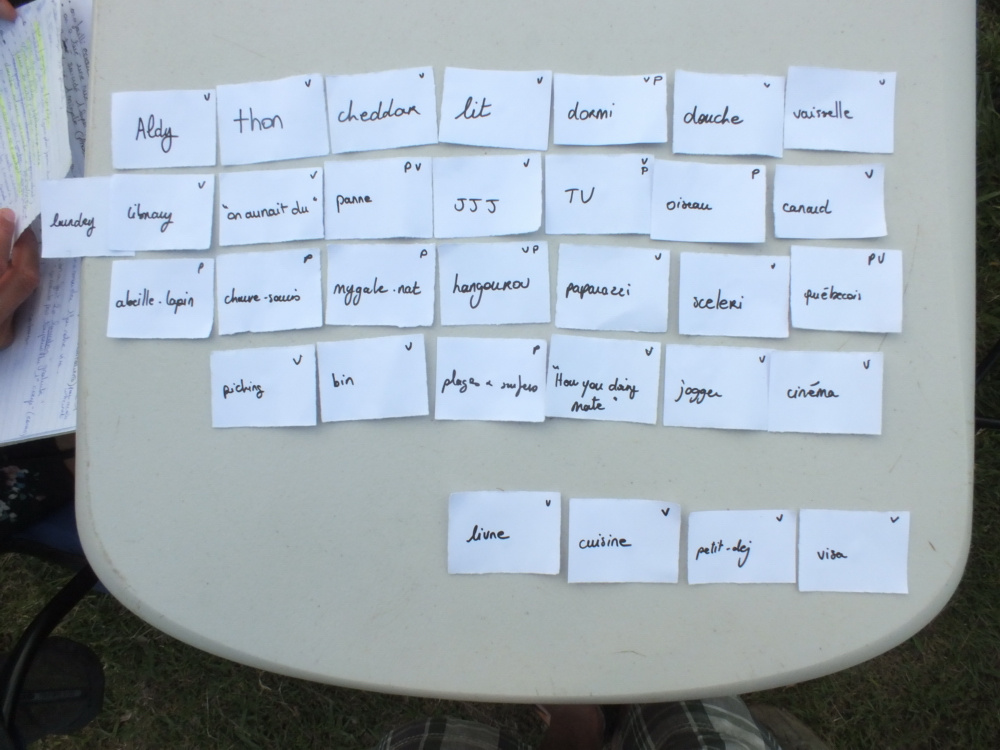 Aldy V
thon V
cheddar V
lit V
dormi V P
douche V
vaisselle V
laundry
library V
"on aurait du" V
panne P V
JJJ V
TV V P
oiseau P
canard V
abeille-lapin P
chauve-souris P
mygale-nat P
kangourou V P
paparazzi V
sceleri
québecois P V
piching V
bin V
plages & surfers P
"How you doing mate" V
jogger V
cinéma V
livre V
cuisine V
petit-dej V
visa V